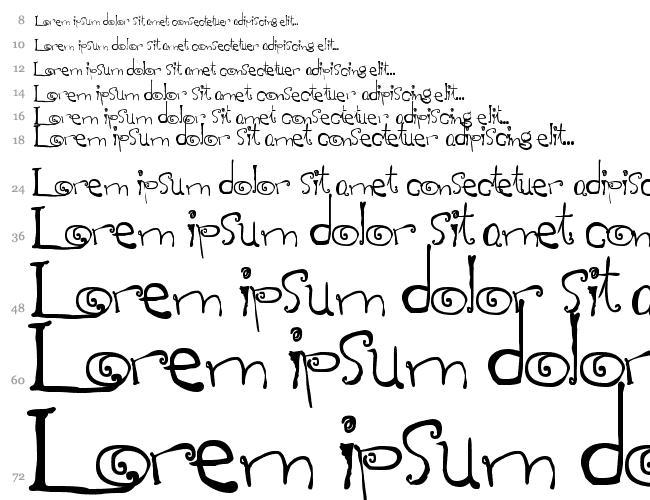 8 Lorem ipsum dolor sit amet consectetuer adipiscing elit...
10 Lorem ipsum dolor sit amet consectetuer adipiscing elit...
12 Lorem ipsum dolor sit amet consectetuer adipiscing elit...
14 Lorem ipsum dolor sit amet consectetuer adipiscing elit...
16 Lorem ipsum dolor sit amet consectetuer adipiscing elit...
18 Lorem ipsum dolor sit amet consectetuer adipiscing elit...
24 Lorem ipsum dolor sit amet consectetuer adipisc
36 Lorem ipsum dolor sit amet con
48 Lorem ipsum dolor sit a
60 Lorem ipsum dolor
72 Lorem ipsum do